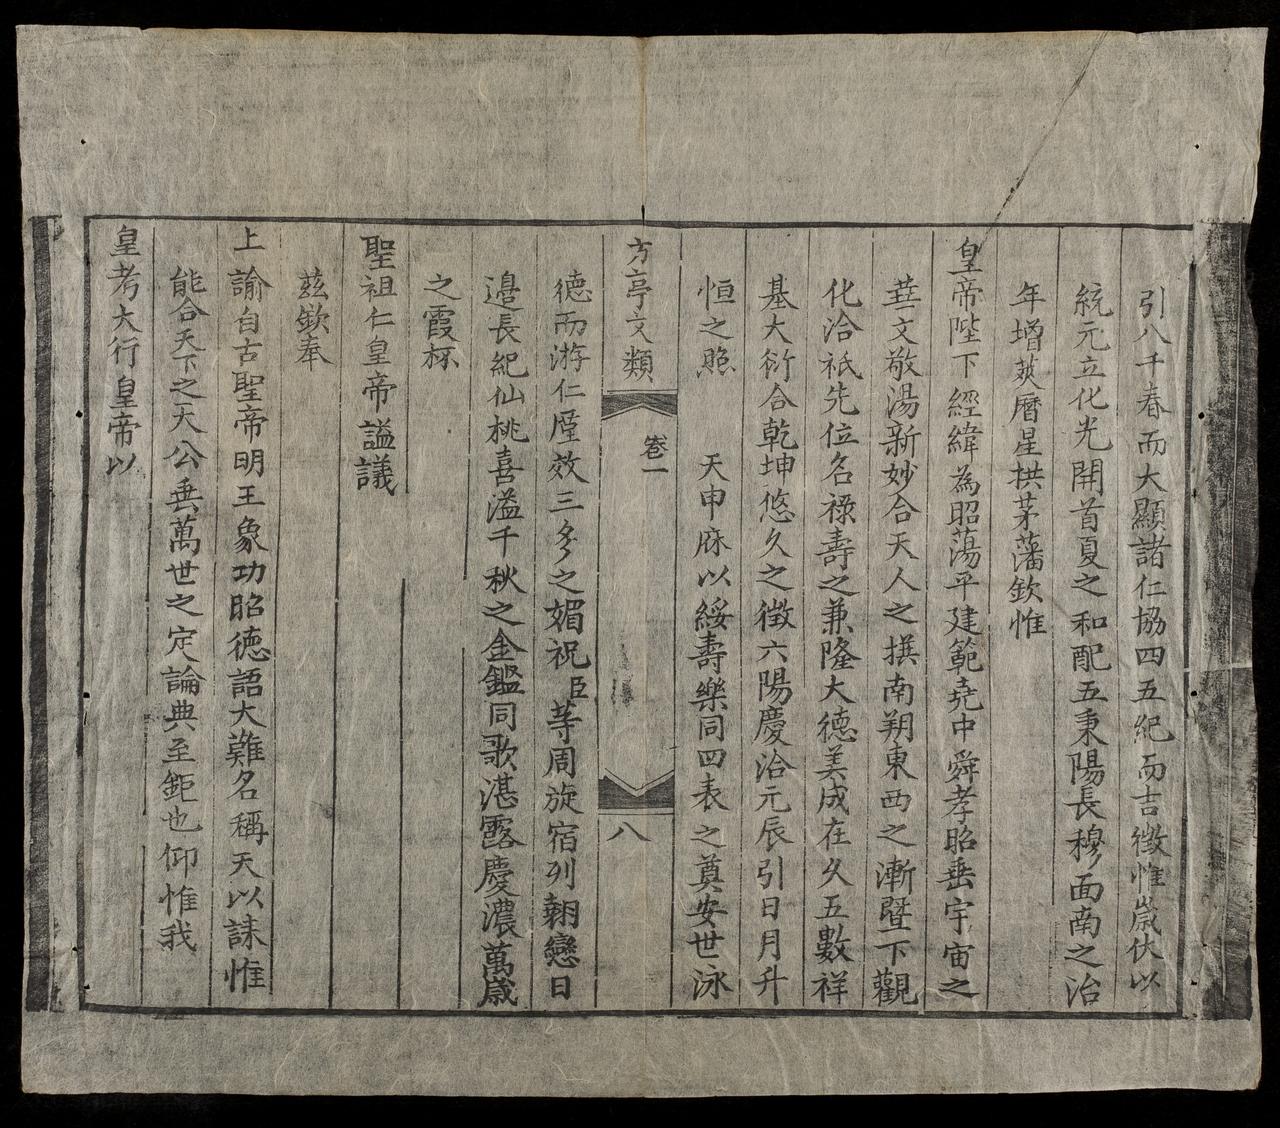 引八千春而大顯諸仁協四五紀而吉徵惟嵗伏以
統元立化光開首夏之和配五秉陽長穆面南之治
年增蓂曆星拱茅藩欽惟
皇帝陛下經緯為昭蕩平建範堯中舜孝昭垂宇宙之
華文敬湯新妙合天人之撰南朔東西之漸暨下觀
化洽祇先位名祿壽之兼隆大德美成在久五數祥
基大衍合乾坤悠久之徵六陽慶洽元辰引日月升
恒之照 天申庥以綏壽樂同四表之奠安世泳
方亭文類 卷一 八
德而游仁廑效三多之媚祝臣等周旋宿列翹戀日
邉長紀仙桃喜溢千秋之金鑑同歌湛露慶濃萬歲
之霞杯
聖祖仁皇帝謚議
兹欽奉
上諭自古聖帝明王象功昭德語大難名稱天以誄惟
能合天下之大公垂萬世之定論典至鉅也仰惟我
皇考大行皇帝以